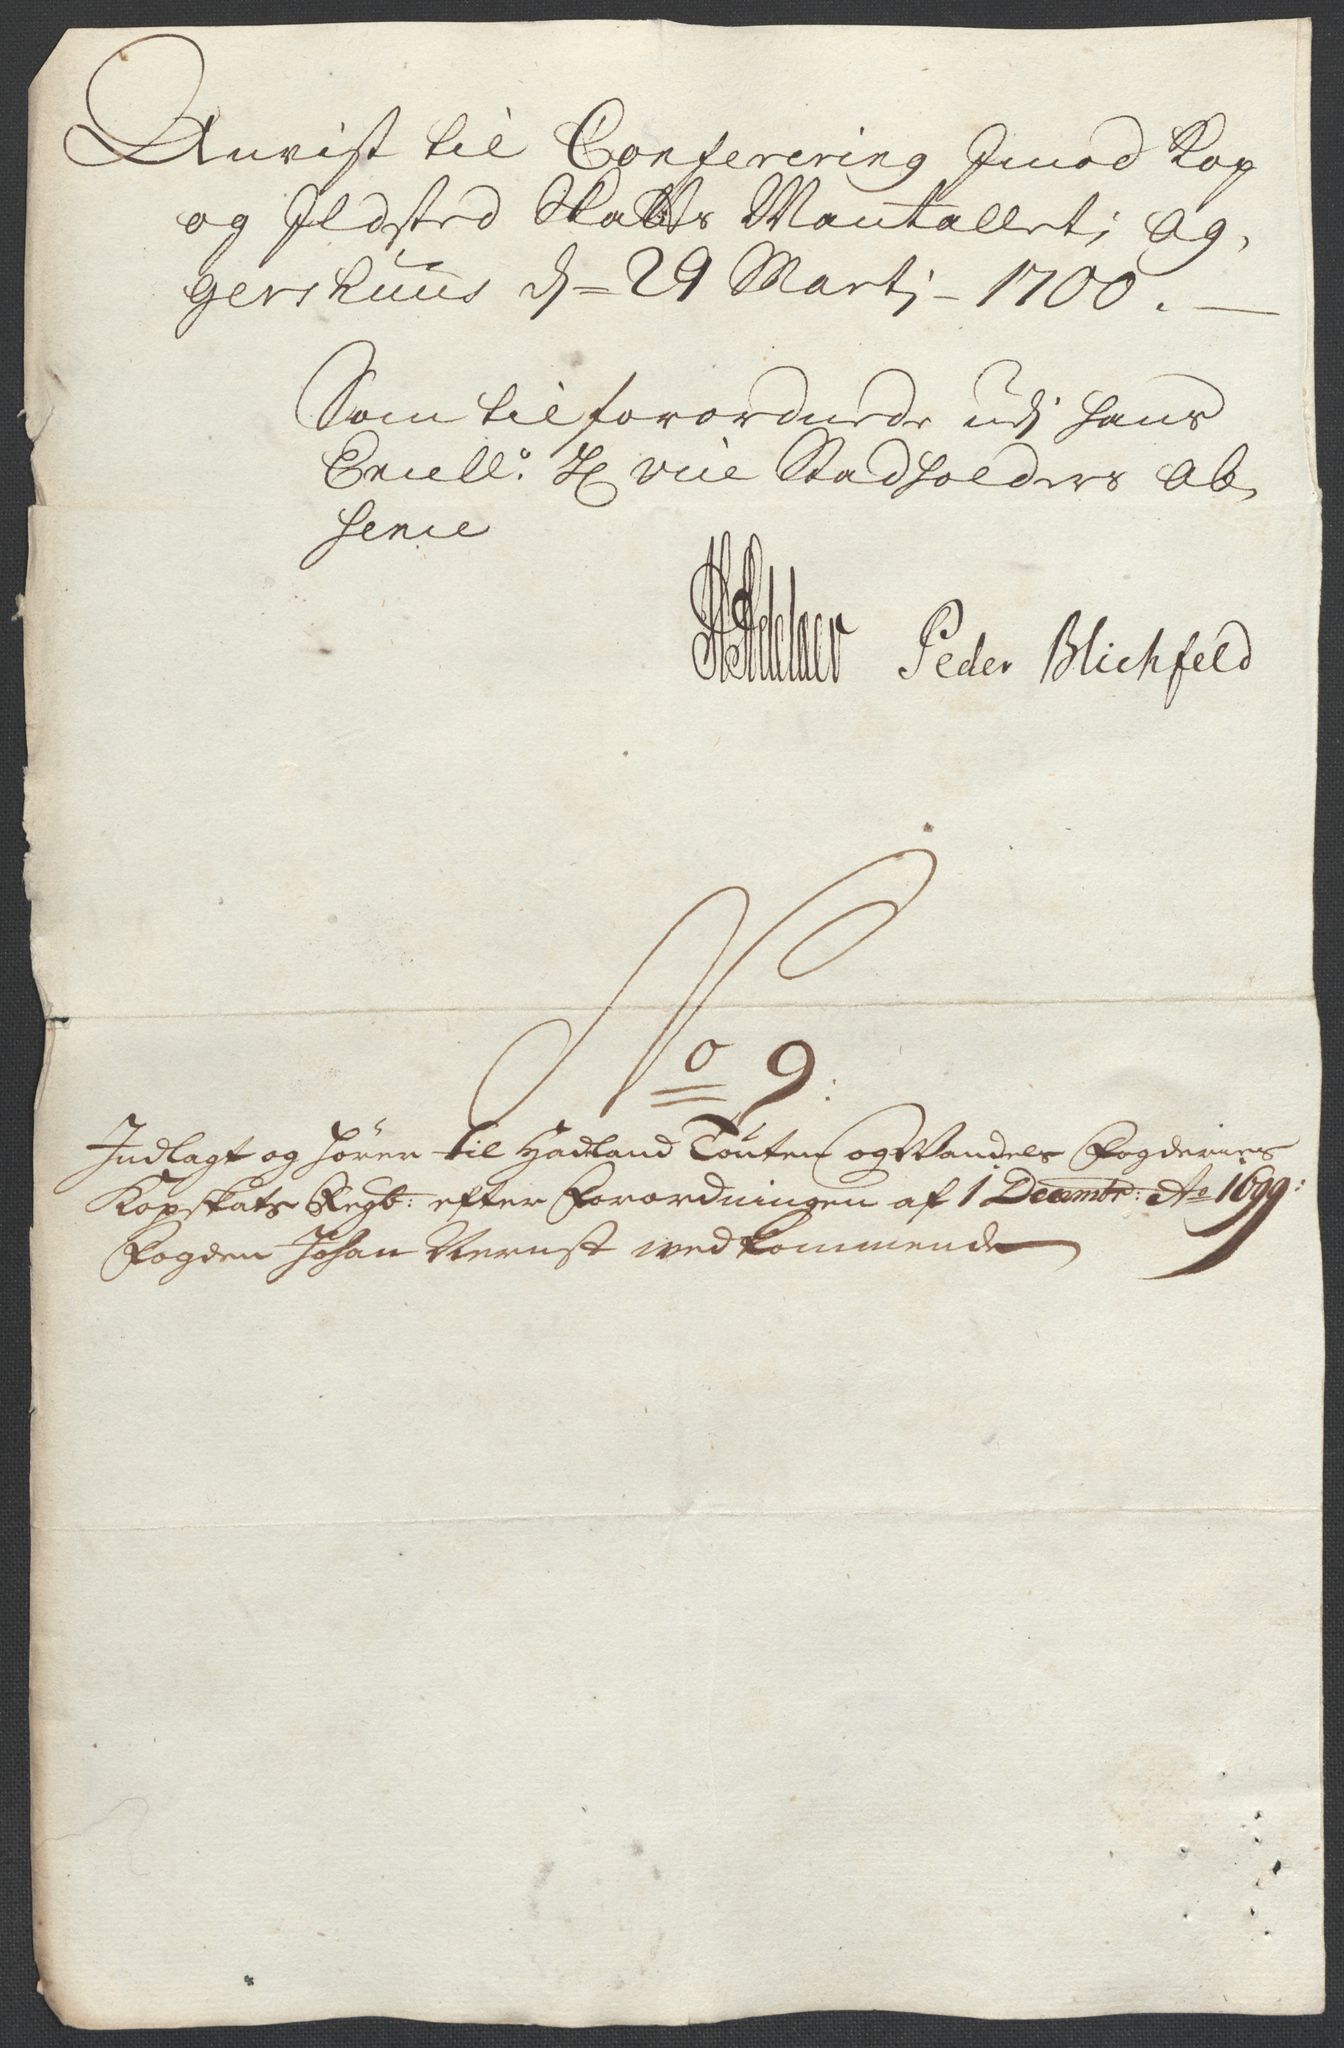 Anvist til Conferering Jmod Kop
og Jldsted Skatts Mantallet; Ag,
gershuus d = 29 Martj - 1700. —
Som tilforordnede udj hans
Excell: H Vice Stadholders Ab,
sence
HAdelaer Peder Blichfeld
No 9:
Indlagt og hörer til Hadland Touten og Vandels Fogderiers
Kopskats Regb: efter Forordningen af 1 Decembr: Ao 1699:
Fogden Johan Nernst vedkommende